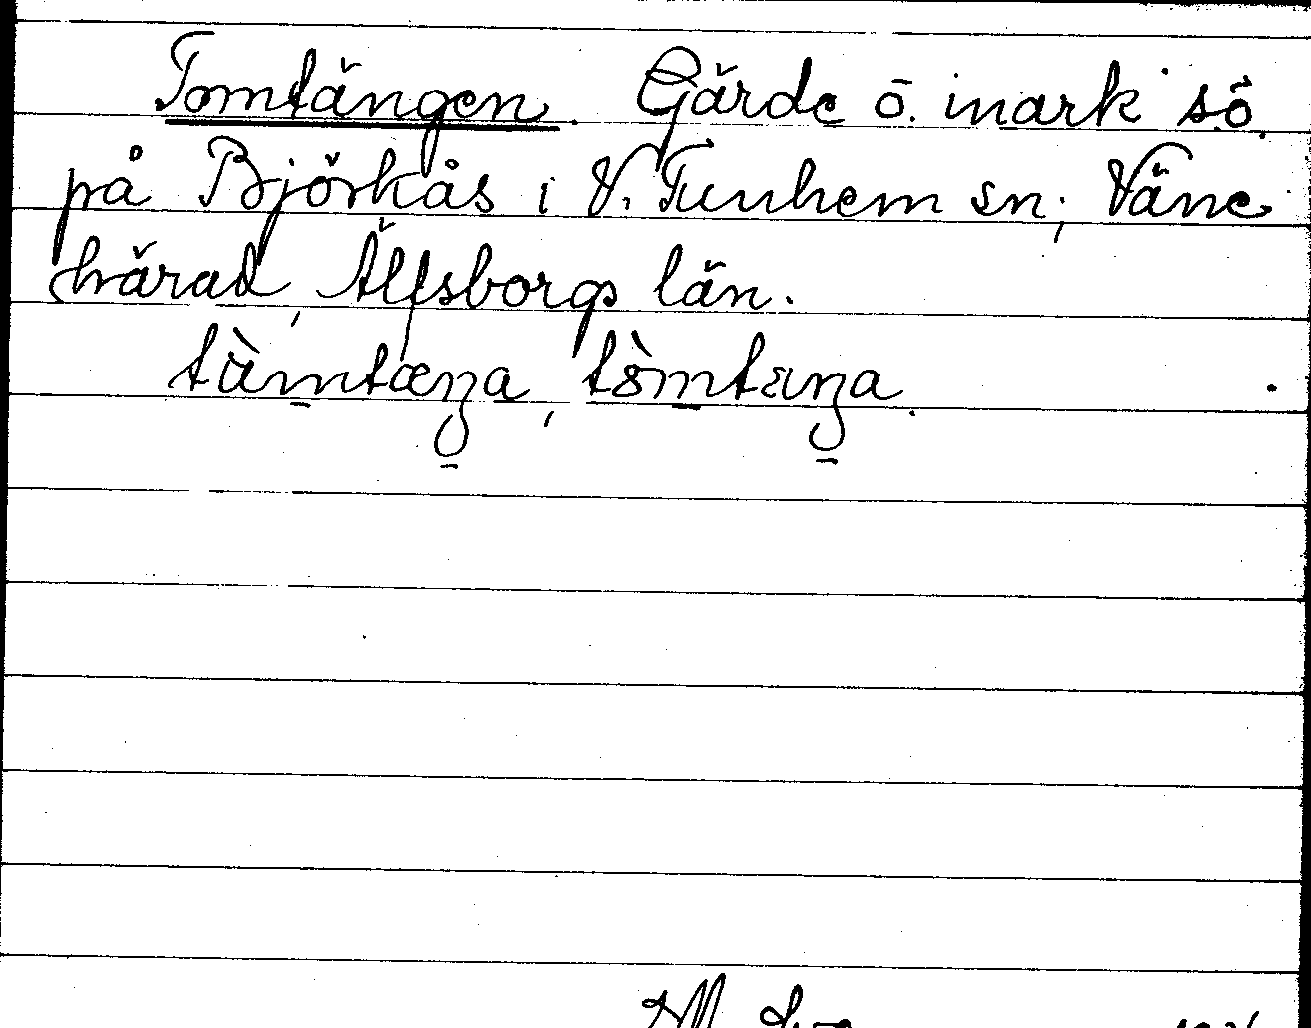 Tomtängen. Gärde o. inmark sö.
på Björkås i V. Tunhem sn, Väne
härad, Älfsborgs län.
tàmtæŋa, tòmtæŋa.